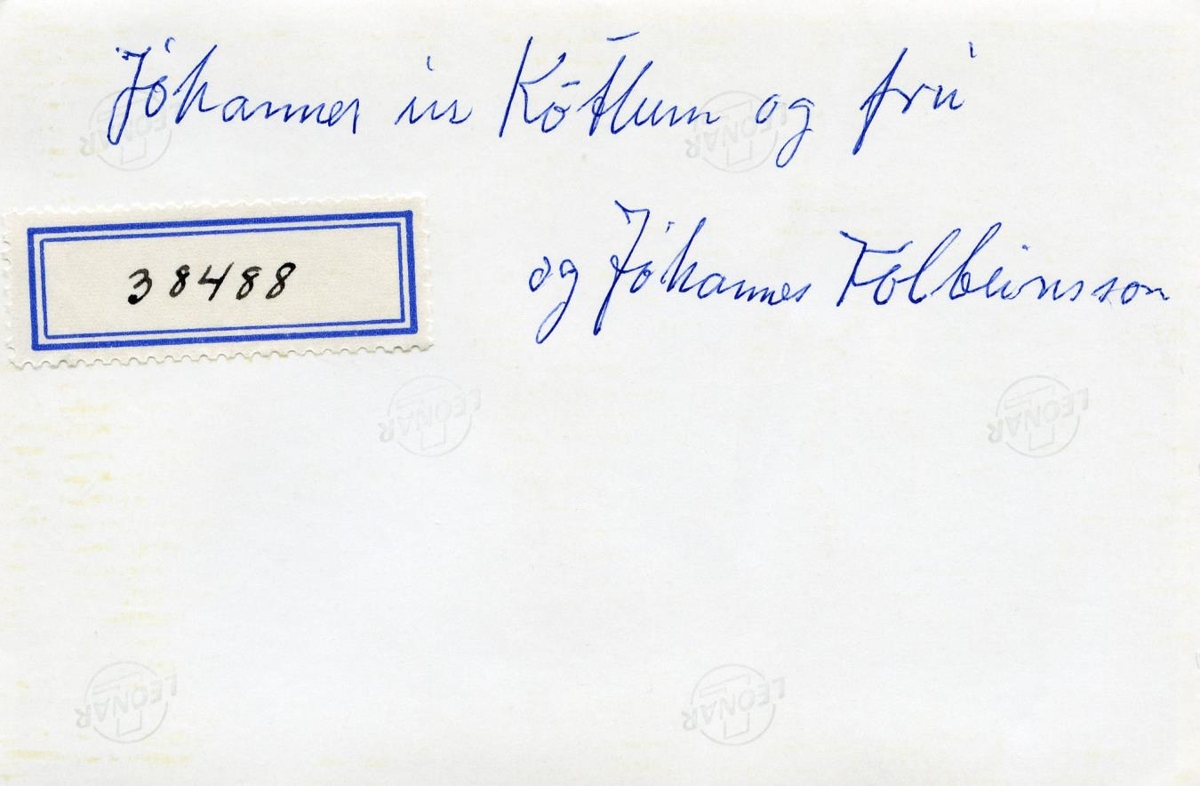 Jóhannes úr Kötlum og frú
og Jóhannes Kolbeinsson
38488
LEONAR
LEONAR
LEONAR
LEONAR
LEONAR
LEONAR